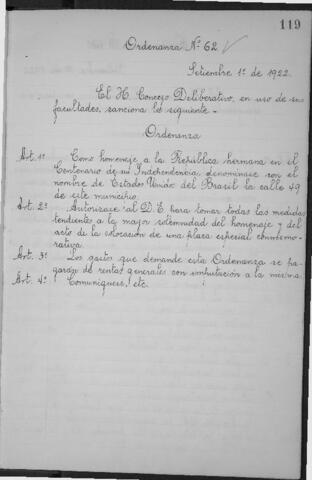 119
Ordenanza Nº 62
Setiembre 1º de 1922.
El H. Concejo Deliberativo, en uso de sus
facultades, sanciona la siguiente -
Ordenanza
Art. 1º Como homenaje a la República hermana en el
Centenario de su Independencia, denomínase con el
nombre de Estados Unidos del Brasil la calle 49
de este municipio.
Art. 2º Autorízase al D. E. para tomar todas las medidas
tendientes a la mayor solemnidad del homenaje y del
acto de la colocación de una placa especial conmemo-
rativa.
Art. 3º Los gastos que demande esta Ordenanza se pa-
garán de rentas generales con imputación a la misma.
Art. 4º Comuníquese, etc.